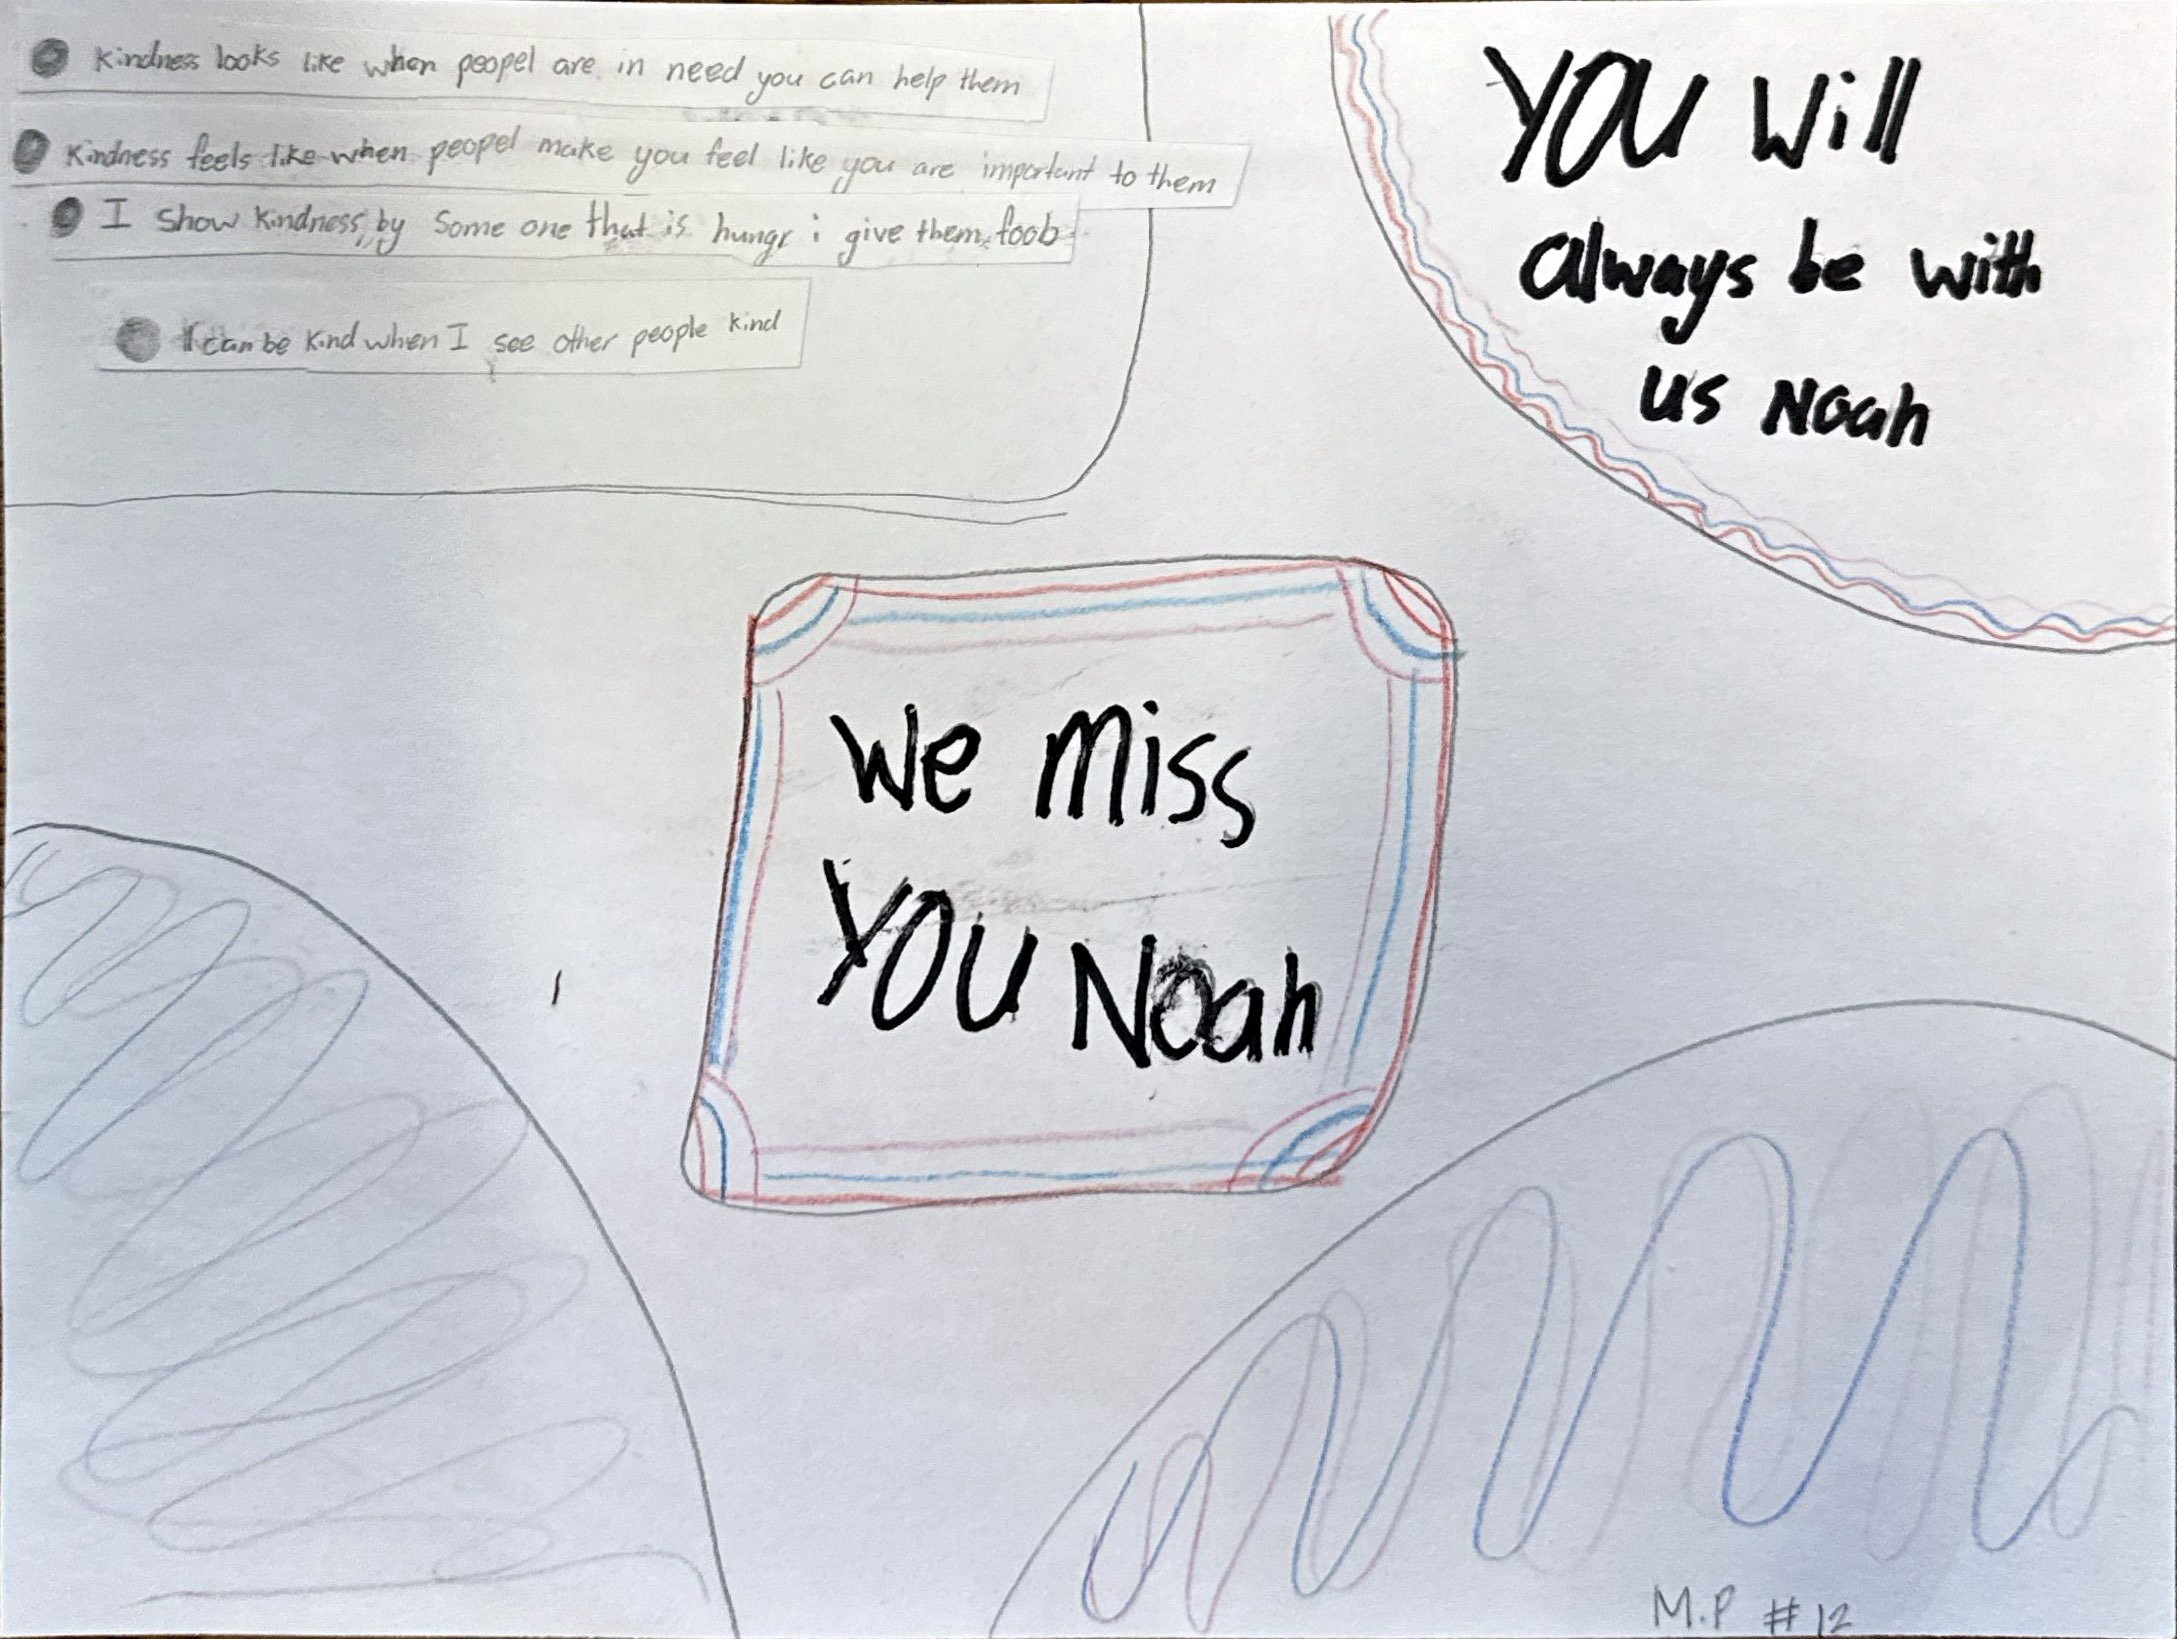 Kindness looks like when peopel are in need you can help them
Kindness feels like when peopel make you feel like you are important to them
I show Kindness by some one that is hungr i give them foob
I can be kind when I see other people kind
YOU Will
always be with
us Noah
We Miss
YOU Noah
M.P #12